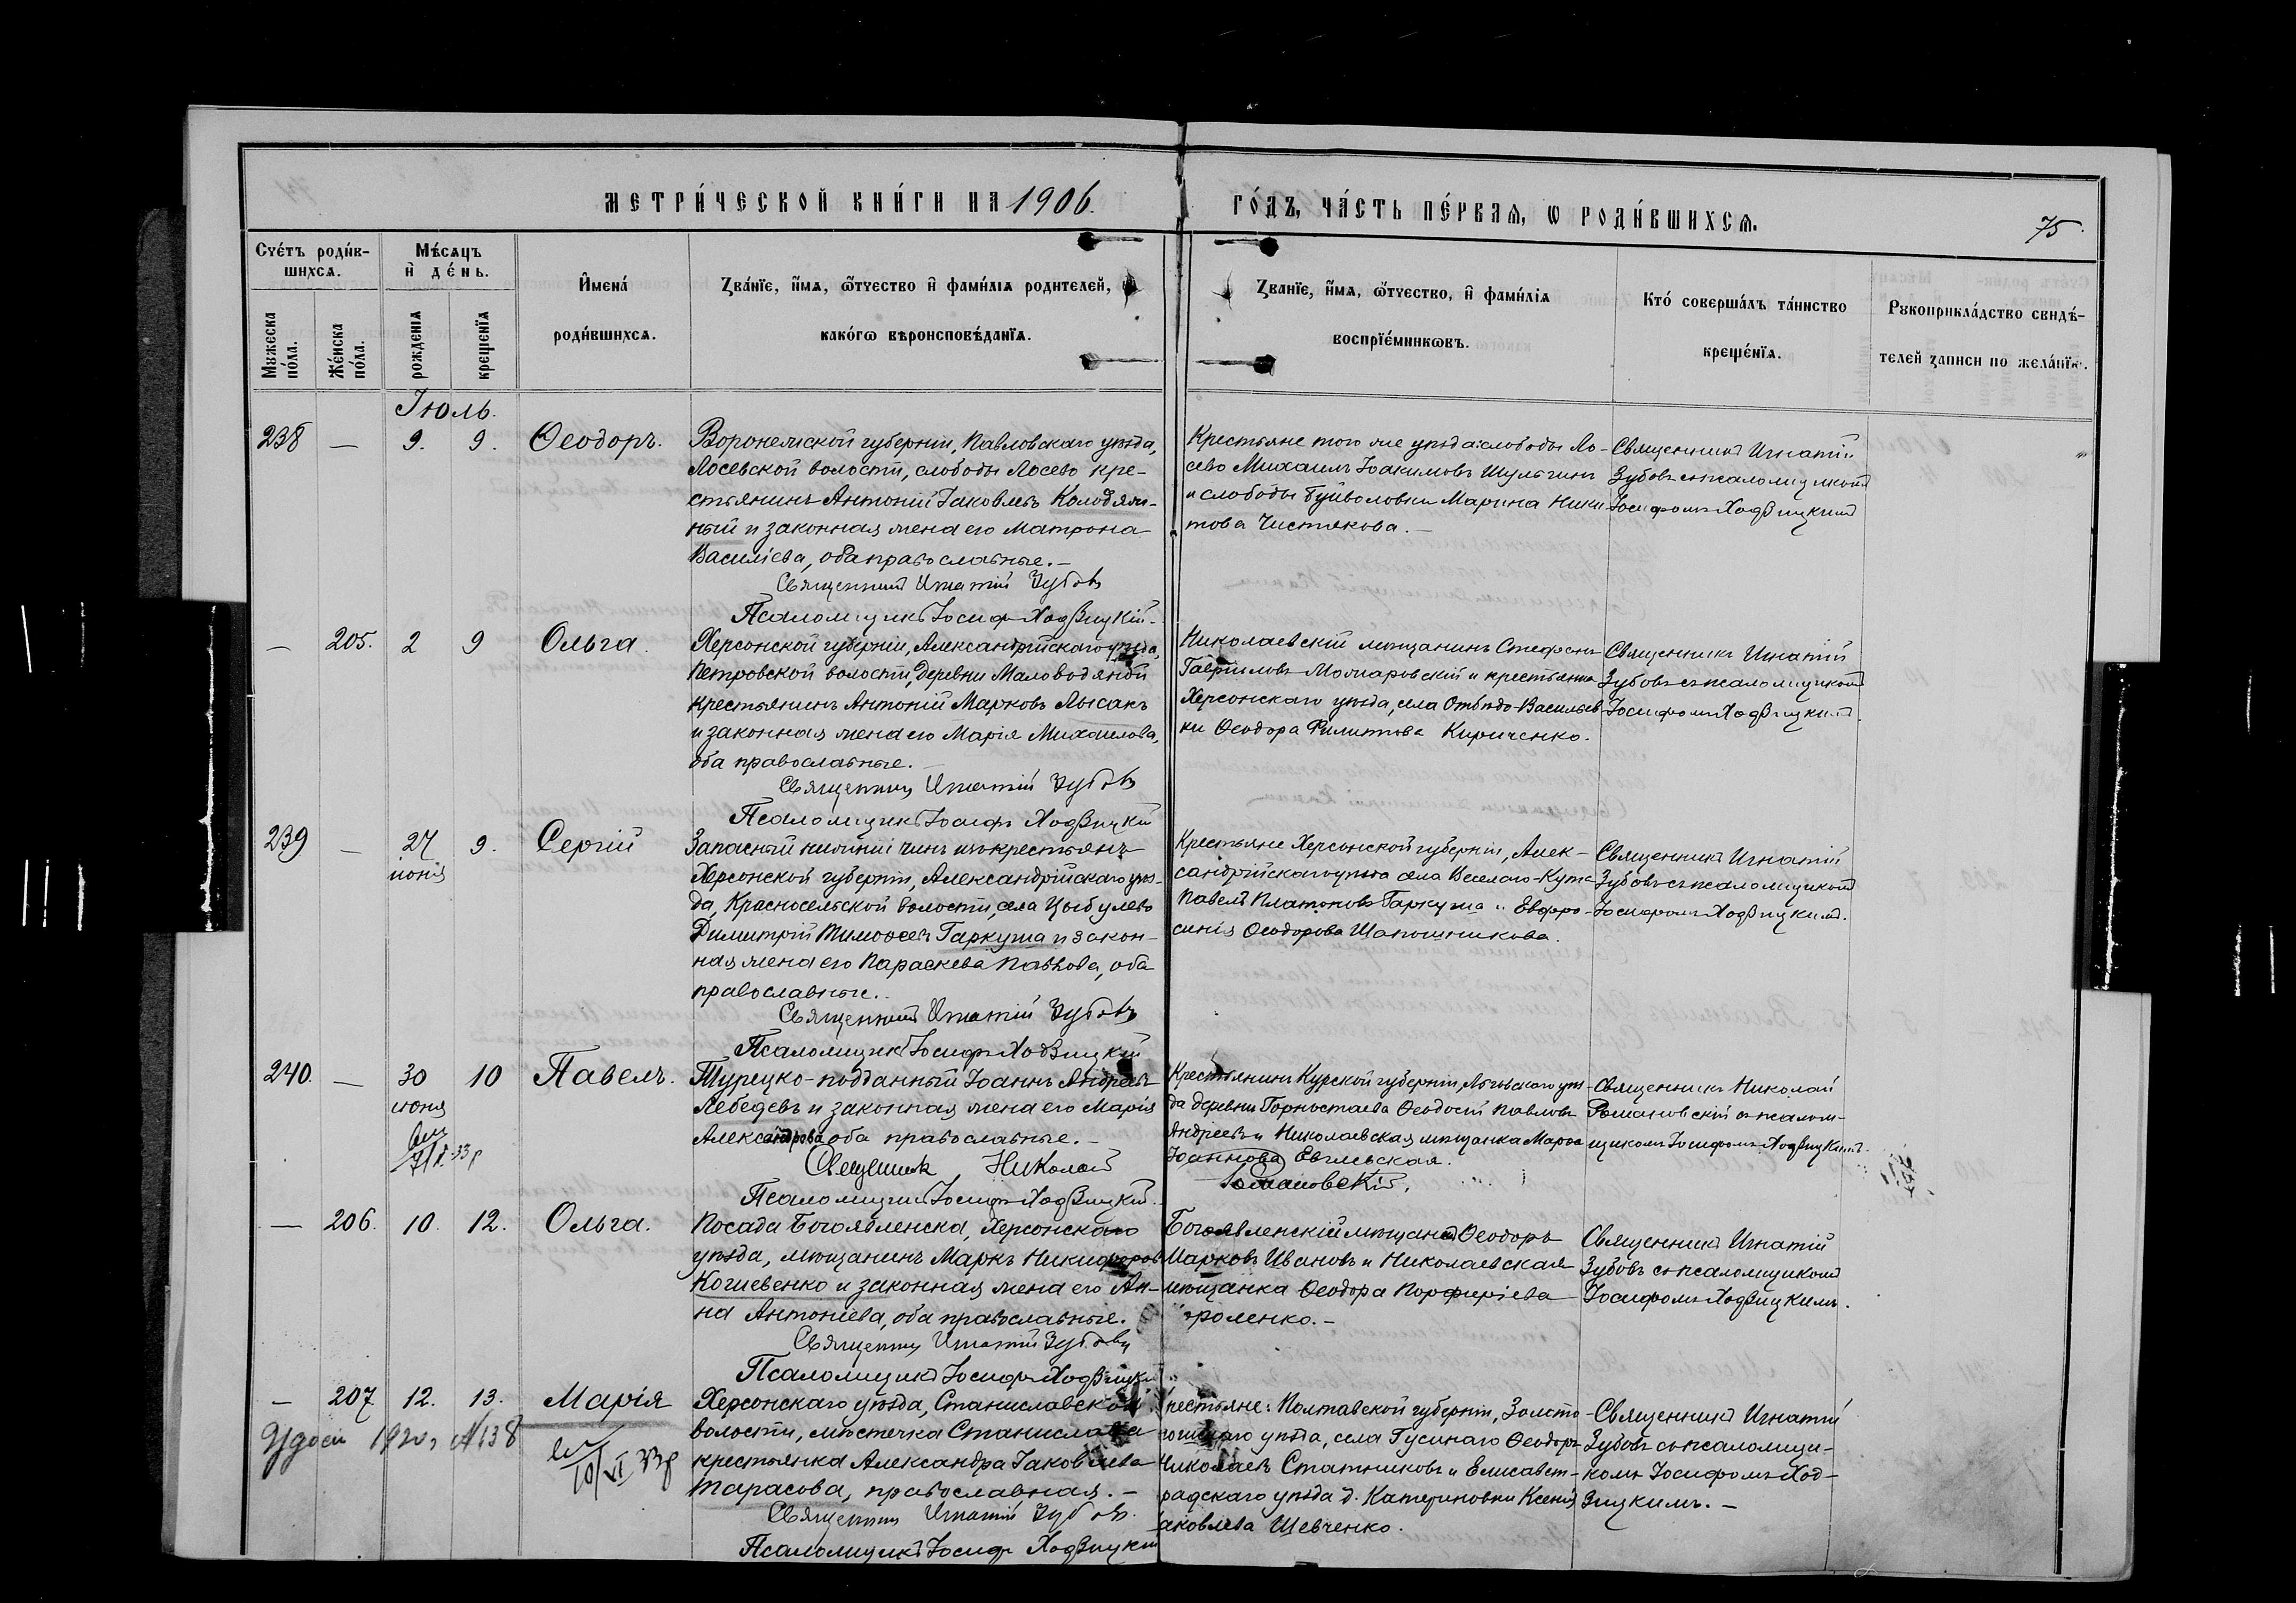 МЕТРИ́ЧЕСКОЙ КНИ́ГИ НА 1906.
ГО́ДЪ, ЧА́СТЬ ПЕ́РВАЯ, Ѡ РОДИ́ВШИХСЯ.
75.
Сче́тъ роди́в-
шихся.
Мѣ́сяцъ
и҆ де́нь.
Мужеска
по́ла.
Же́нска
по́ла.
рожденїя
крещенїя
И҆мена́
роди́вшихся.
Зва́нїе, и҆́мя, ѻ҆́тчество и҆ фами́лїя родителей, и
како́гѡ вѣроисповѣ́данїя.
Зва́нїе, и҆́мя, ѻ҆́тчество, и҆ фами́лїя
воспрїе́мникѡвъ.
Кто́ соверша́лъ та́инство
креще́нїя.
Рукоприкла́дство свидѣ́-
телей записи по жела́нїю.
Іюль.
238 — 9. 9. Ѳеодоръ.
Воронежской губерніи, Павловскаго уѣзда,
Лосевской волости, слободы Лосево кре-
стьянинъ Антоній Іаковлевъ Колодяж-
ный и законная жена его Матрона
Василіева, оба православные.—
Священникъ Игнатій Зубовъ
Псаломщикъ Іосифъ Ходзицкій.
Крестьяне того же уѣзда: слободы Ло-
сево Михаилъ Іоакимовъ Шульгинъ
и слободы Буйволовки Марина Ники
това Чистякова.—
Священникъ Игнатій
Зубовъ съ псаломщикомъ
Іосифомъ Ходзицкимъ
— 205. 2 9 Ольга.
Херсонской губерніи, Александрійскаго уѣзда,
Петровской волости, Деревни Маловодяной
крестьянинъ Антоній Марковъ Лысакъ
и законная жена его Марія Михаилова,
оба православные.—
Священникъ Игнатій Зубовъ
Псаломщикъ Іосифъ Ходзицкій
Николаевскій мѣщанинъ Стефанъ
Гавріиловъ Мочаровскій и крестьянка
Херсонскаго уѣзда, села Отбѣдо-Васильев
ки Ѳеодора Филиппова Кириченко.
Священникъ Игнатій
Зубовъ съ псаломщикомъ
Іосифомъ Ходзицкимъ.
239 — 27 іюня 9. Сергій
Запасный нижній чинъ изъ крестьянъ
Херсонской губерніи, Александрійскаго уѣз-
да, Красносельской волости, села Цыбулево
Димитрій Тимоѳеевъ Гаркуша и закон-
ная жена его Параскева Павлова, оба
православные..
Священникъ Игнатій Зубовъ
Псаломщикъ Іосифъ Ходзицкій
Крестьяне Херсонской губерніи, Алек-
сандрійскаго уѣзда села Веселаго-Кута
Павелъ Платоновъ Гаркуша и Евфро-
синія Ѳеодорова Шапошникова.
Священникъ Игнатій
Зубовъ съ псаломщикомъ
Іосифомъ Ходзицкимъ.
240. — 30 іюня 10 Павелъ.
Турецко-подданный Іоаннъ Андреевъ
Лебедевъ и законная жена его Марія
Александрова оба православные.—
Священникъ Николай
Псаломщикъ Іосифъ Ходзицкій.
Крестьянинъ Курской губерніи, Льговскаго уѣз-
да деревни Горностаева Ѳеодосій Павловъ
Андреевъ и Николаевская мѣщанка Марѳа
Іоаннова
Романовскій.
Священникъ Николай
Романовскій съ псалом-
щикомъ Іосифомъ Ходзицкимъ.
— 206. 10. 12. Ольга.
Посада Богоявленска, Херсонскаго
уѣзда, мѣщанинъ Маркъ Никифоровъ
Когиевенко и законная жена его Ан-
на Антоніева, оба православные.
Священникъ Игнатій Зубовъ
Псаломщикъ Іосифъ Ходзицкій
Богоявленскій мѣщанинъ Ѳеодоръ
Марковъ Ивановъ и Николаевская
мѣщанка Ѳеодора Порфиріева
Фроленко.—
Священникъ Игнатій
Зубовъ съ псаломщикомъ
Іосифомъ Ходзицкимъ.
— 207 12. 13. Марія
1920 г № 138
10/VI 33 р
Херсонскаго уѣзда, Станиславской
волости, мѣстечка Станислава
крестьянка Александра Іаковлева
Тарасова, православная.—
Священникъ Игнатій Зубовъ.
Псаломщикъ Іосифъ Ходзицкій
Крестьяне: Полтавской губерніи, Золото
ношскаго уѣзда, села Гусинаго Ѳеодоръ
Николаевъ Статниковъ и Елисавет-
радскаго уѣзда д. Катериновки Ксенія
аковлева Шевченко.
Священникъ Игнатій
Зубовъ съ псаломщи-
комъ Іосифомъ Ход-
зицкимъ.—